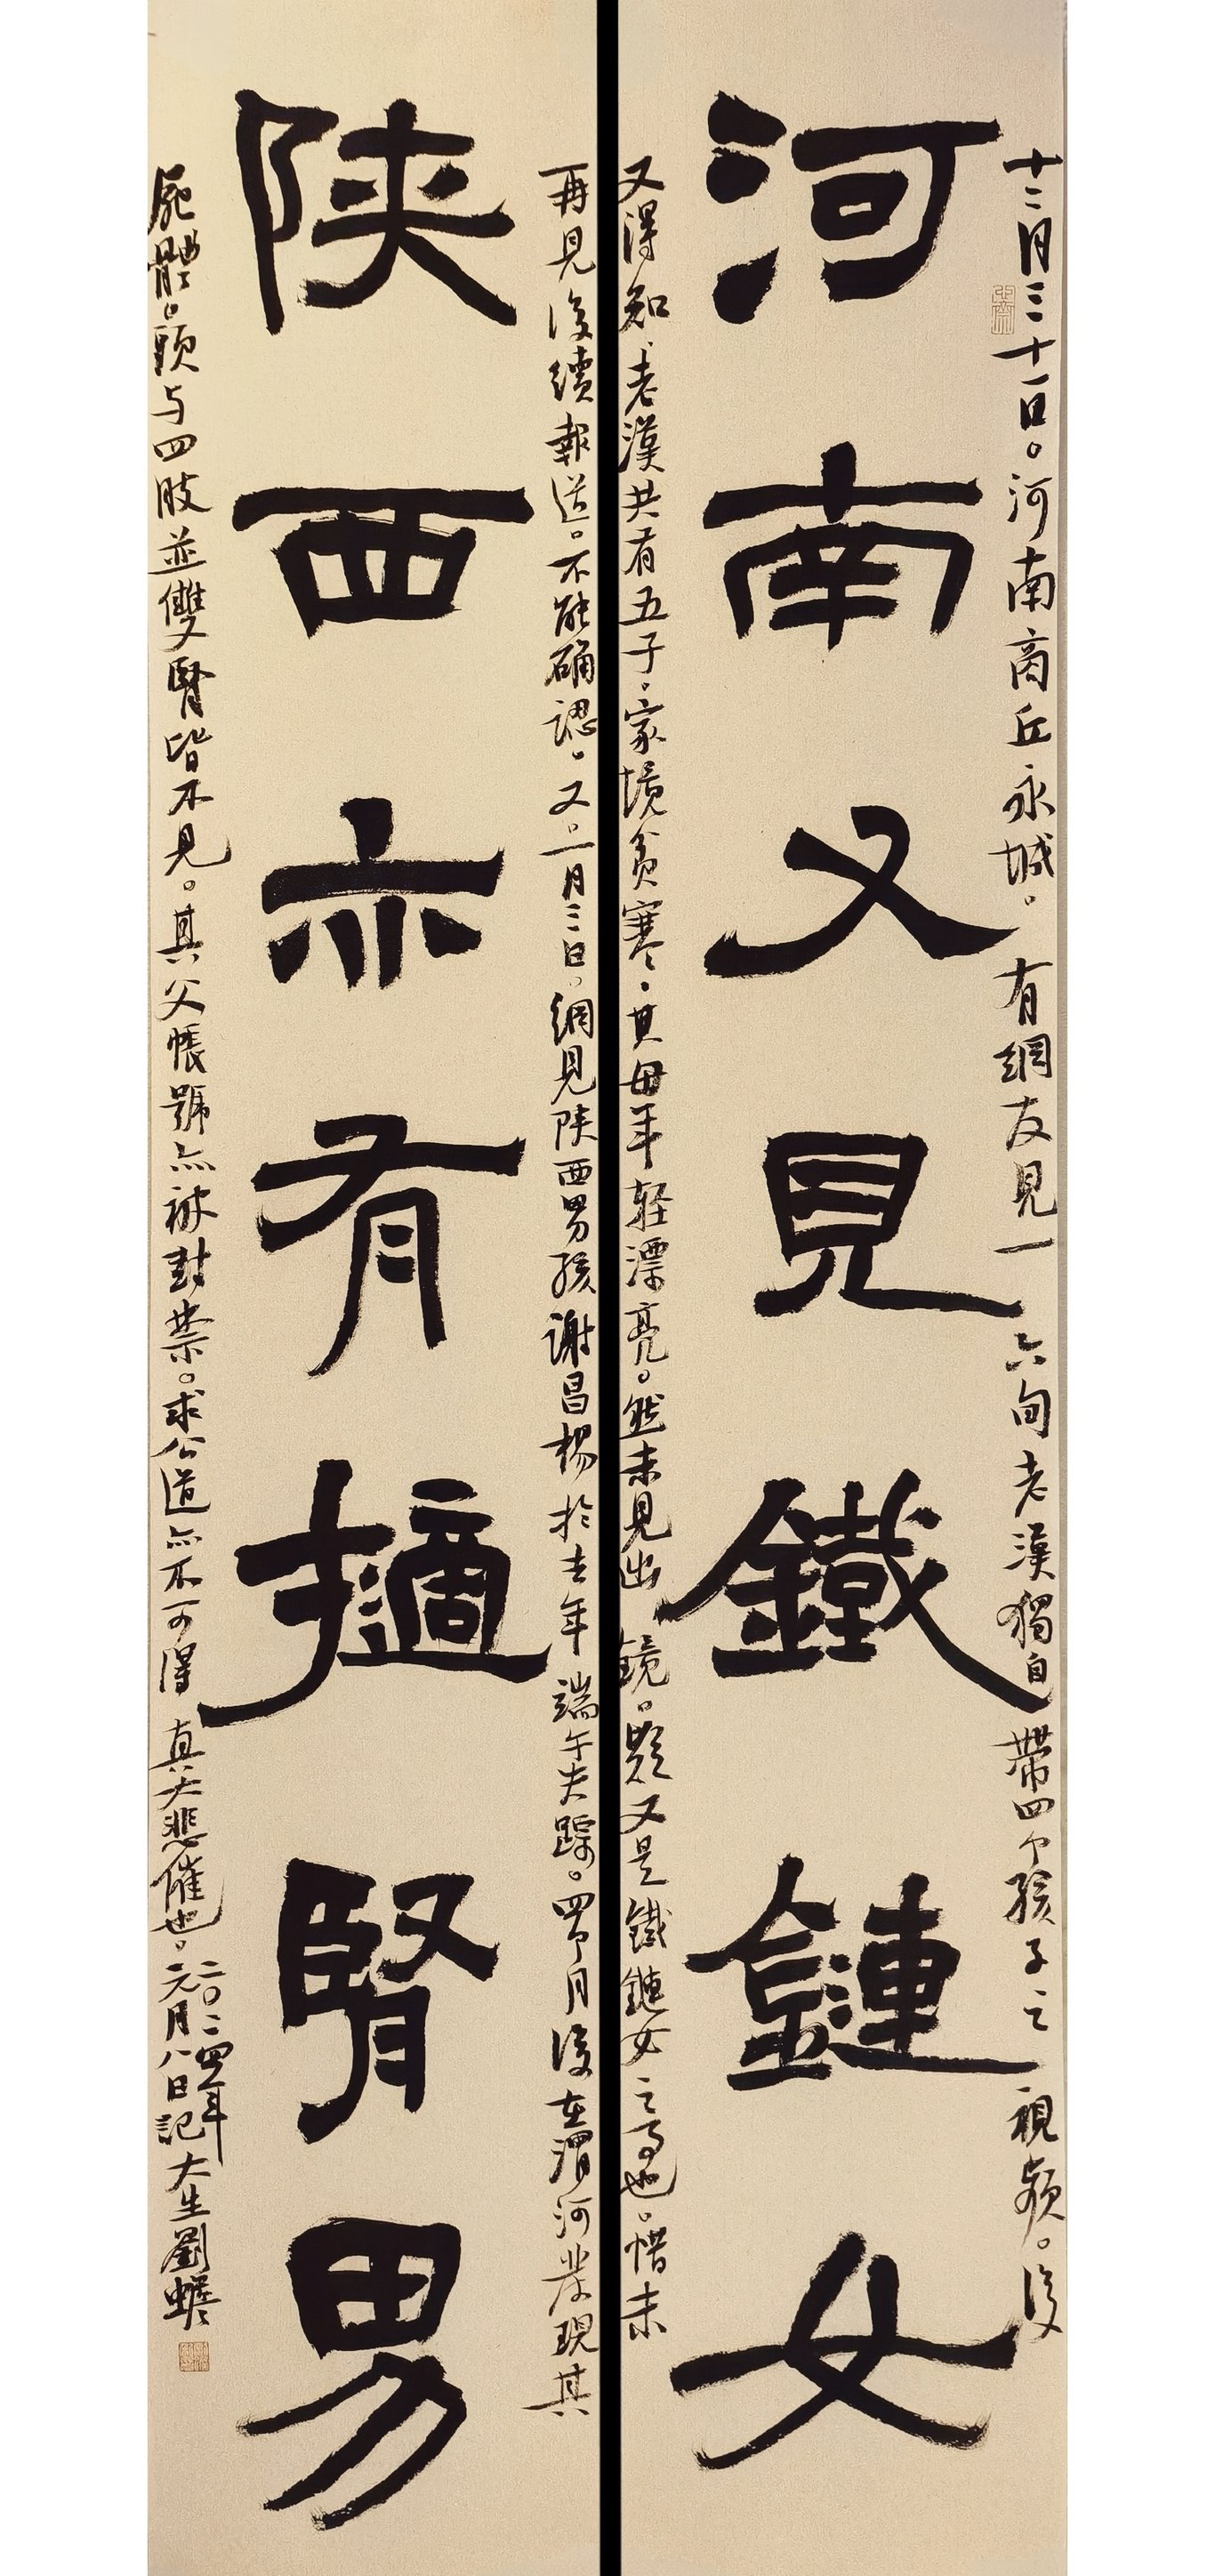 河南又見鐵鏈女
十二月三十一日。河南商丘永城。有網友見一六旬老漢獨自帶四个孩子之視頻。後
又得知、老漢共有五子。家境貧寒。其母年轻漂亮。然未見出鏡。疑又是鐵鏈女之事也。惜未
再見後續報道。不能确認。又。一月三日。網見陕西男孩謝昌楊於去年端午失踪。四个月後在渭河发現其
陕西亦有摘腎男
屍體。頭与四肢並雙腎皆不見。其父帳號亦被封禁。求公道亦不可得 真大悲催也。
二〇二四年
元月八日記 大生劉蟾